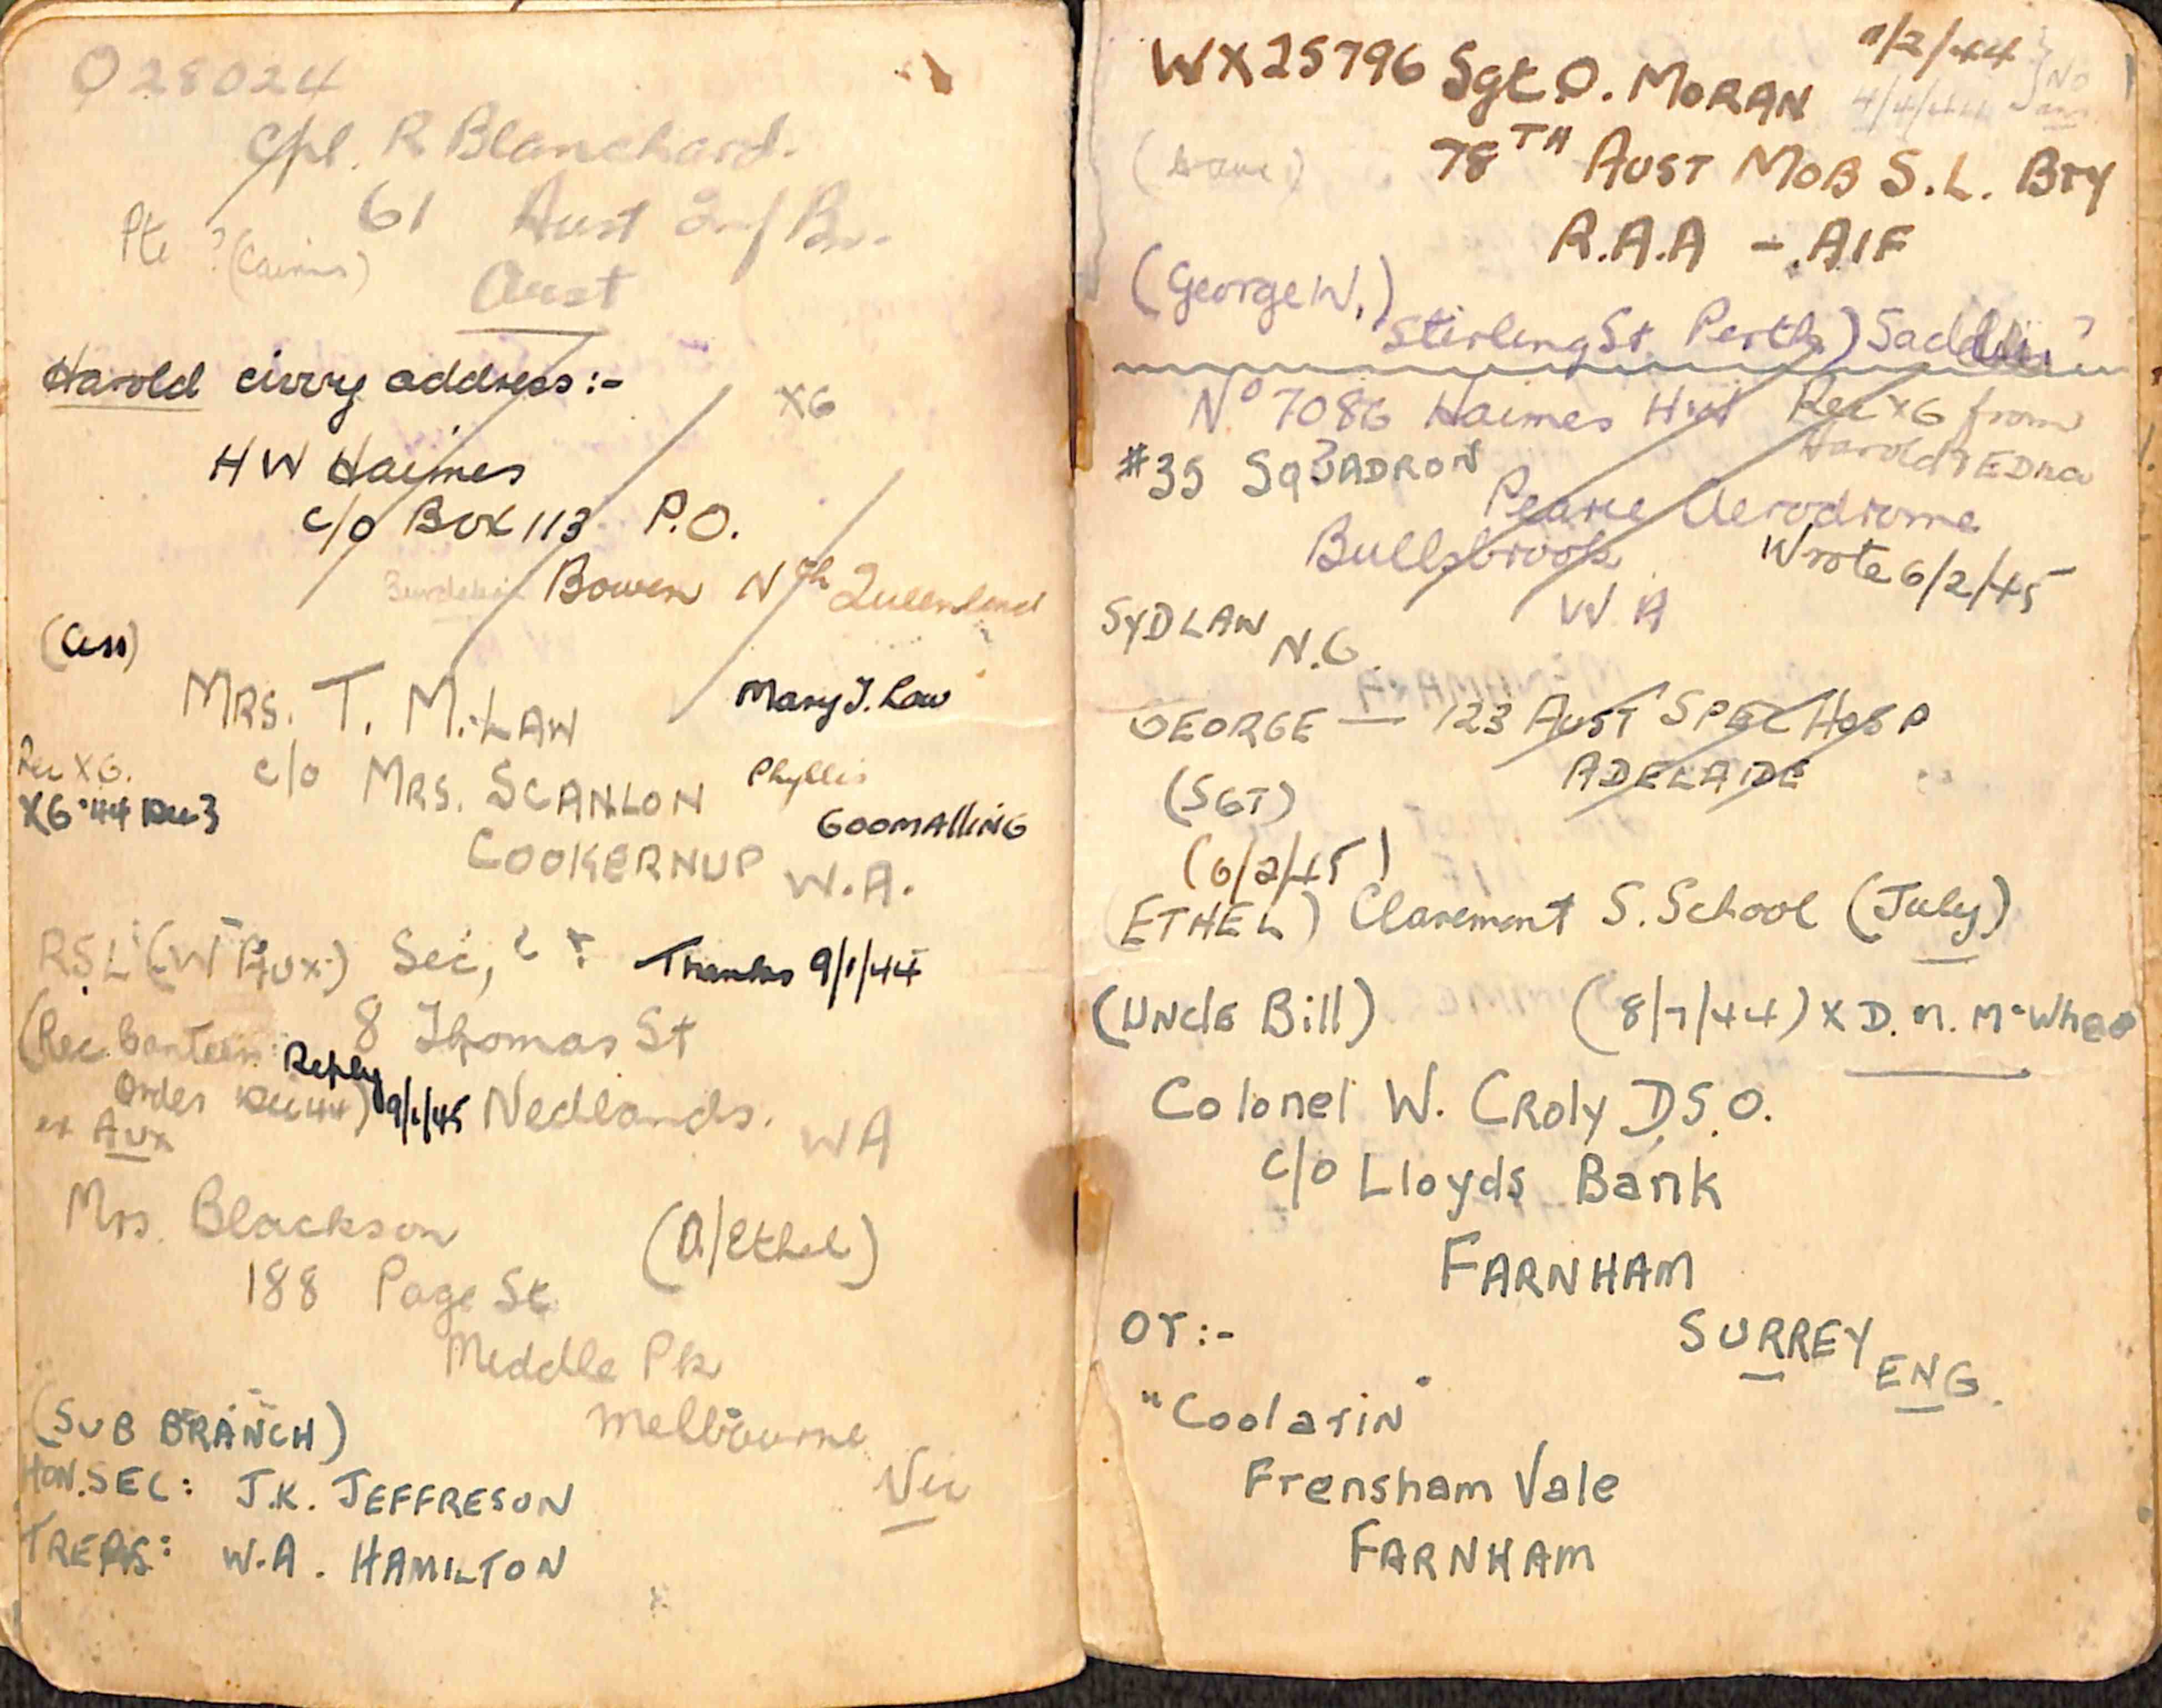 Q28024
Cpl. R Blanchard.
61 Aust Inf Bn.
Pte ? (Cairns)
Aust
Harold civvy address:-
X6
HW Haimes
c/o Box 113 P.O.
Bowen Nth Queensland
(Cess)
MRS. T. M. LAW
Mary J. Law
Rec X6.
c/o MRS. SCANLON
Phyllis
X6 '44 Dec 3
GOOMAllING
COOKERNUP W.A.
RSL (W Aux) Sec, ? ? Thanks 9/1/44
(Rec. Canteen 8 Thomas St
Order Dec 44) Reply 9/1/45 Nedlands. WA
ex Aux
Mrs. Blackson (A/Ethel)
188 Page St
Middle Pk
Melbourne
Vic
(SUB BRANCH)
HON. SEC: J.K. JEFFRESON
TREAS: W.A. HAMILTON
WX25796 Sgt D. MORAN
/2/44
4/4/44
No
(Dave)
78TH AUST MOB S.L. BTY
R.A.A - AIF
(George W.)
Stirling St Perth)
No 7086 Haimes HW Rec X6 from
Harold & EDna
#35 SQUADRON
Pearce Aerodrome
Bullsbrook
Wrote 6/2/45
W A
SYD LAW N.G.
GEORGE — 123 AUST SPEC HOSP
ADELAIDE
(SGT)
(6/2/45)
ETHEL) Claremont S. School (July)
(UNclE Bill) (8/7/44) X D. M. McWhae
Colonel W. CRoly D.S.O.
c/o Lloyds Bank
FARNHAM
SURREY ENG.
or:-
"Coolarin"
Frensham Vale
FARNHAM